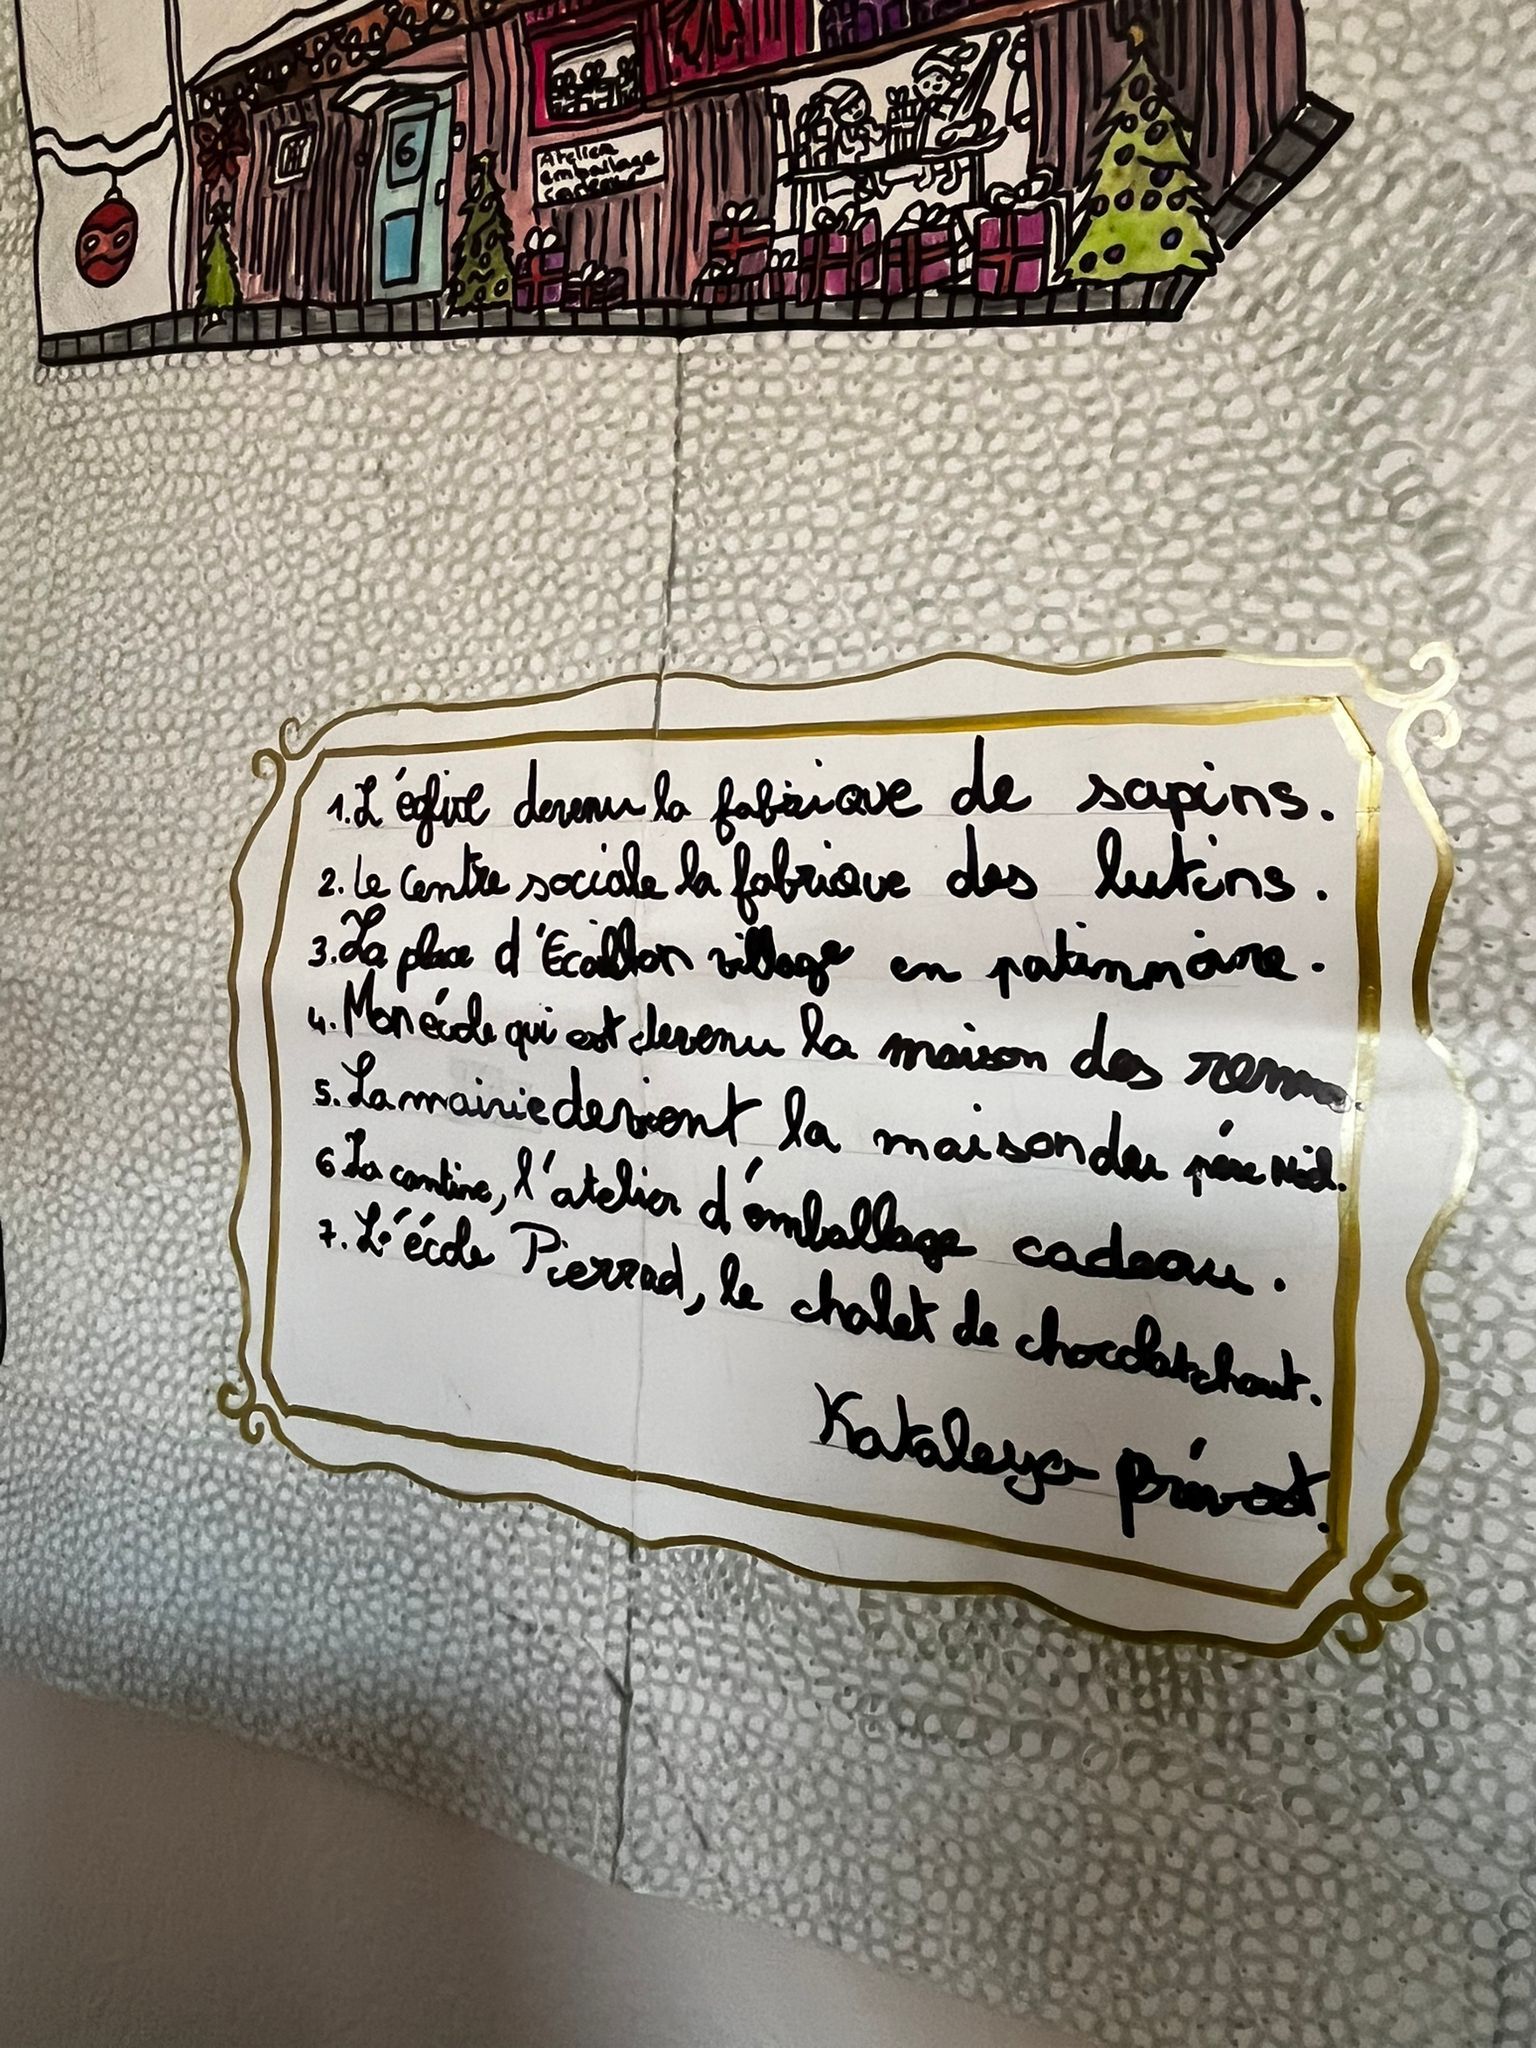 6
Atelier
emballage
1. L'église devenu la fabrique de sapins.
2. Le Centre sociale la fabrique des lutins.
3. La place d'Ecaillon village en patinnoire.
4. Mon école qui est devenu la maison des
5. La mairie devient la maison du père Noël.
6 La cantine, l'atelier d'emballage cadeau.
7. L'école Pierrad, le chalet de chocolat chaut.
Kataleya prévost.